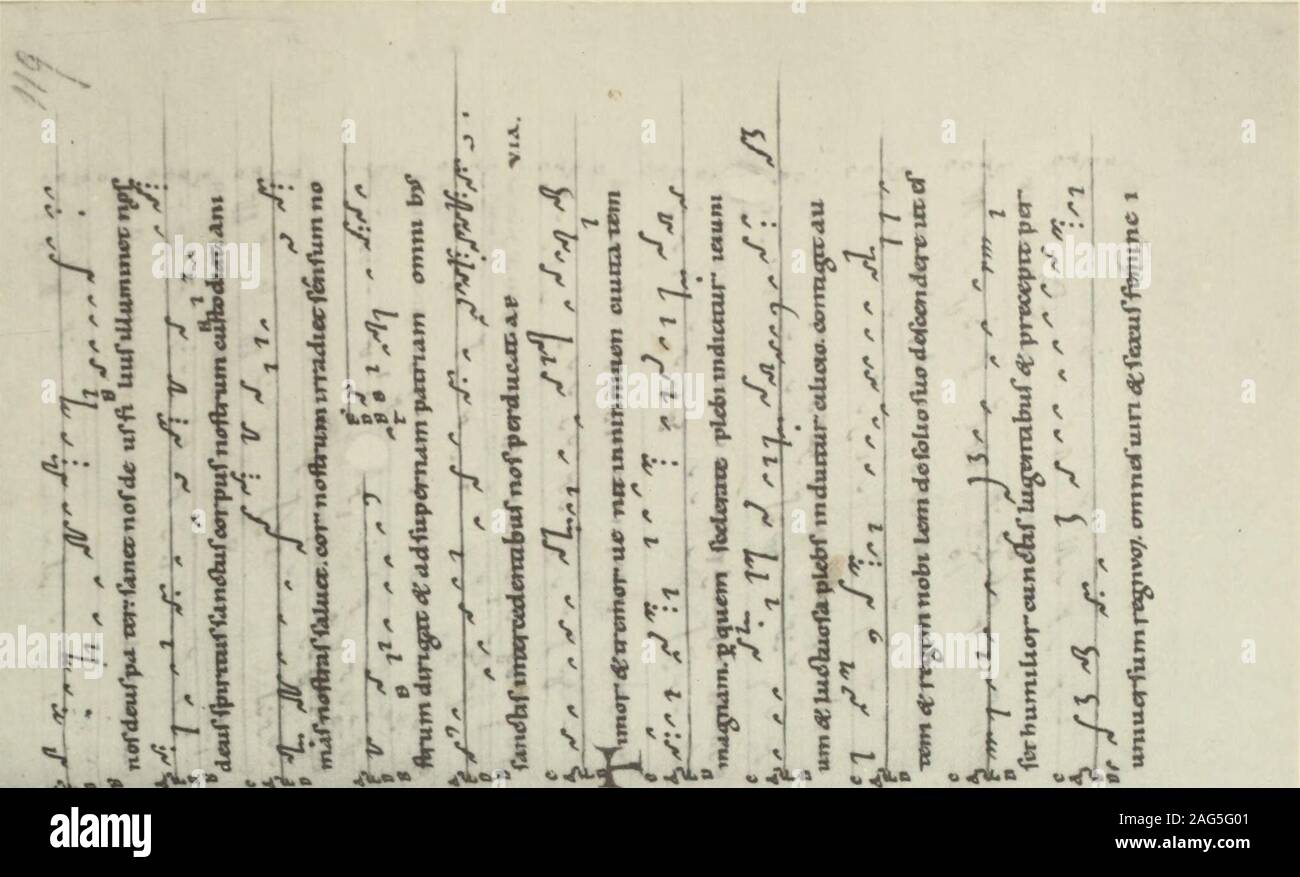 119
nos deus pa ter. sanctꝰ nos de us fi lius illuminet nos
deus spiritus sanctus corpus nostrum custodiat ani
mas nostras saluet. cor nostrum irradiet sensum no
strum dirigat & ad supernam patriam omni bus
sanctis intercedentibus nos perducat. A E VIA.
Timor & tremor ue nit in niniuen ciuita tem
magnam. p quem sceleratae plebi indicitur ieiuni
um & luctuosa plebs in duitur cilicio. contigit au
tem & regem nobi lem de solio suo descendere ut es
set humilior cunctis lugentibus & praecepit per
uniuersum regnum. omnes uiri & sexus femine i
alamy
alamy
Image ID: 2AG5G01
www.alamy.com